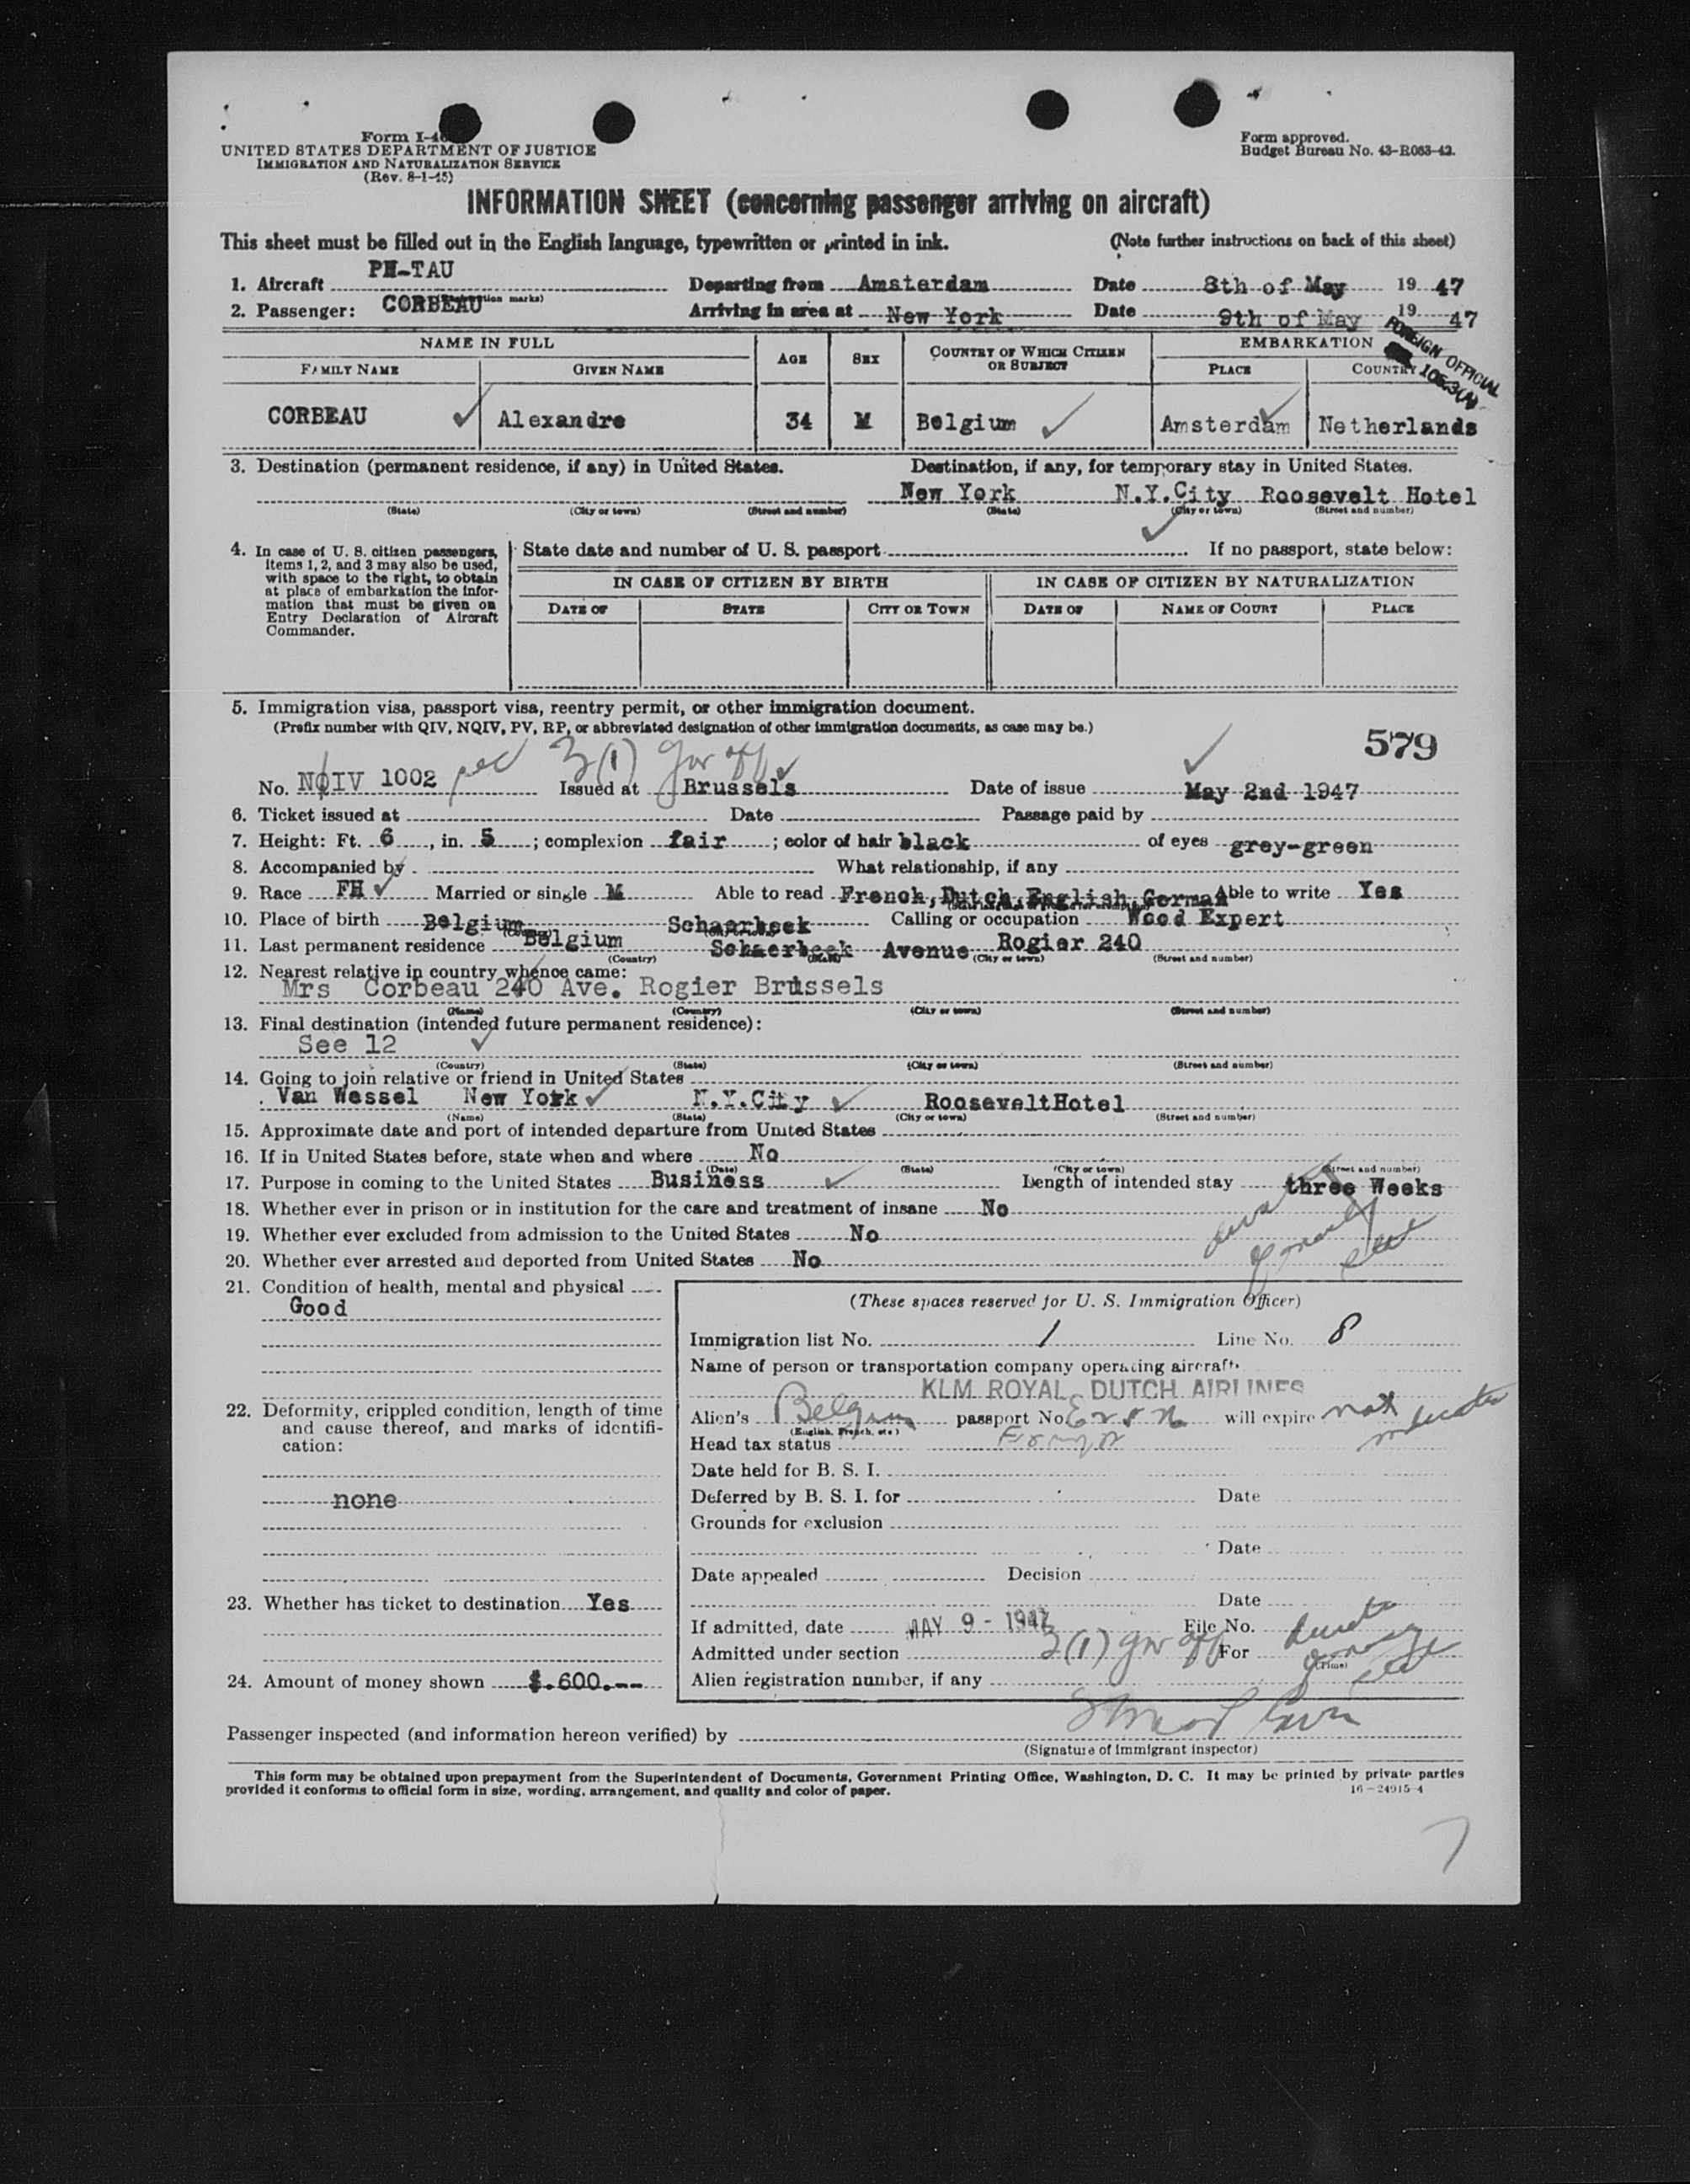 Form I-4
UNITED STATES DEPARTMENT OF JUSTICE
IMMIGRATION AND NATURALIZATION SERVICE
(Rev. 8-1-45)
Form approved.
Budget Bureau No. 43-R063-42.
INFORMATION SHEET (concerning passenger arriving on aircraft)
This sheet must be filled out in the English language, typewritten or printed in ink. (Note further instructions on back of this sheet)
1. Aircraft PH-TAU Departing from Amsterdam Date 8th of May 19 47
2. Passenger: CORBEAU Arriving in area at New York Date 9th of May 19 47
FOREIGN OFFICIAL
NAME IN FULL AGE SEX COUNTRY OF WHICH CITIZEN OR SUBJECT EMBARKATION
FAMILY NAME GIVEN NAME PLACE COUNTRY
CORBEAU Alexandre 34 M Belgium Amsterdam Netherlands
3. Destination (permanent residence, if any) in United States. Destination, if any, for temporary stay in United States.
New York N.Y.City Roosevelt Hotel
(State) (City or town) (Street and number) (State) (City or town) (Street and number)
4. In case of U. S. citizen passengers, items 1, 2, and 3 may also be used, with space to the right, to obtain at place of embarkation the information that must be given on Entry Declaration of Aircraft Commander.
State date and number of U. S. passport If no passport, state below:
IN CASE OF CITIZEN BY BIRTH IN CASE OF CITIZEN BY NATURALIZATION
DATE OF STATE CITY OR TOWN DATE OF NAME OF COURT PLACE
5. Immigration visa, passport visa, reentry permit, or other immigration document.
(Prefix number with QIV, NQIV, PV, RP, or abbreviated designation of other immigration documents, as case may be.)
579
3(1) gov off
No. NQIV 1002 Issued at Brussels Date of issue May 2nd 1947
6. Ticket issued at Date Passage paid by
7. Height: Ft. 6, in. 5; complexion fair; color of hair black of eyes grey-green
8. Accompanied by What relationship, if any
9. Race FH Married or single M Able to read French,Dutch,English,German Able to write Yes
10. Place of birth Belgium Schaerbeek Calling or occupation Wood Expert
11. Last permanent residence Belgium Schaerbeek Avenue Rogier 240
(Country) (State) (City or town) (Street and number)
12. Nearest relative in country whence came:
Mrs Corbeau 240 Ave. Rogier Brussels
(Name) (Country) (City or town) (Street and number)
13. Final destination (intended future permanent residence):
See 12
(Country) (State) (City or town) (Street and number)
14. Going to join relative or friend in United States
Van Wessel New York N.Y.City RooseveltHotel
(Name) (State) (City or town) (Street and number)
15. Approximate date and port of intended departure from United States
16. If in United States before, state when and where No
(Date) (State) (City or town) (Street and number)
17. Purpose in coming to the United States Business Length of intended stay three Weeks
18. Whether ever in prison or in institution for the care and treatment of insane No
19. Whether ever excluded from admission to the United States No
20. Whether ever arrested and deported from United States No
21. Condition of health, mental and physical
Good
(These spaces reserved for U. S. Immigration Officer)
Immigration list No. 1 Line No. 8
Name of person or transportation company operating aircraft.
KLM ROYAL DUTCH AIRLINES
22. Deformity, crippled condition, length of time and cause thereof, and marks of identification:
none
Alien's Belgium passport No. will expire not
(English, French, etc.)
Head tax status
Date held for B. S. I.
Deferred by B. S. I. for Date
Grounds for exclusion
Date
Date appealed Decision
Date
23. Whether has ticket to destination Yes
If admitted, date MAY 9 - 1947 File No.
Admitted under section 3(1) gov off For
(Time)
24. Amount of money shown $.600.--
Alien registration number, if any
Passenger inspected (and information hereon verified) by
(Signature of immigrant inspector)
This form may be obtained upon prepayment from the Superintendent of Documents, Government Printing Office, Washington, D. C. It may be printed by private parties
provided it conforms to official form in size, wording, arrangement, and quality and color of paper.
16-24915-4
7